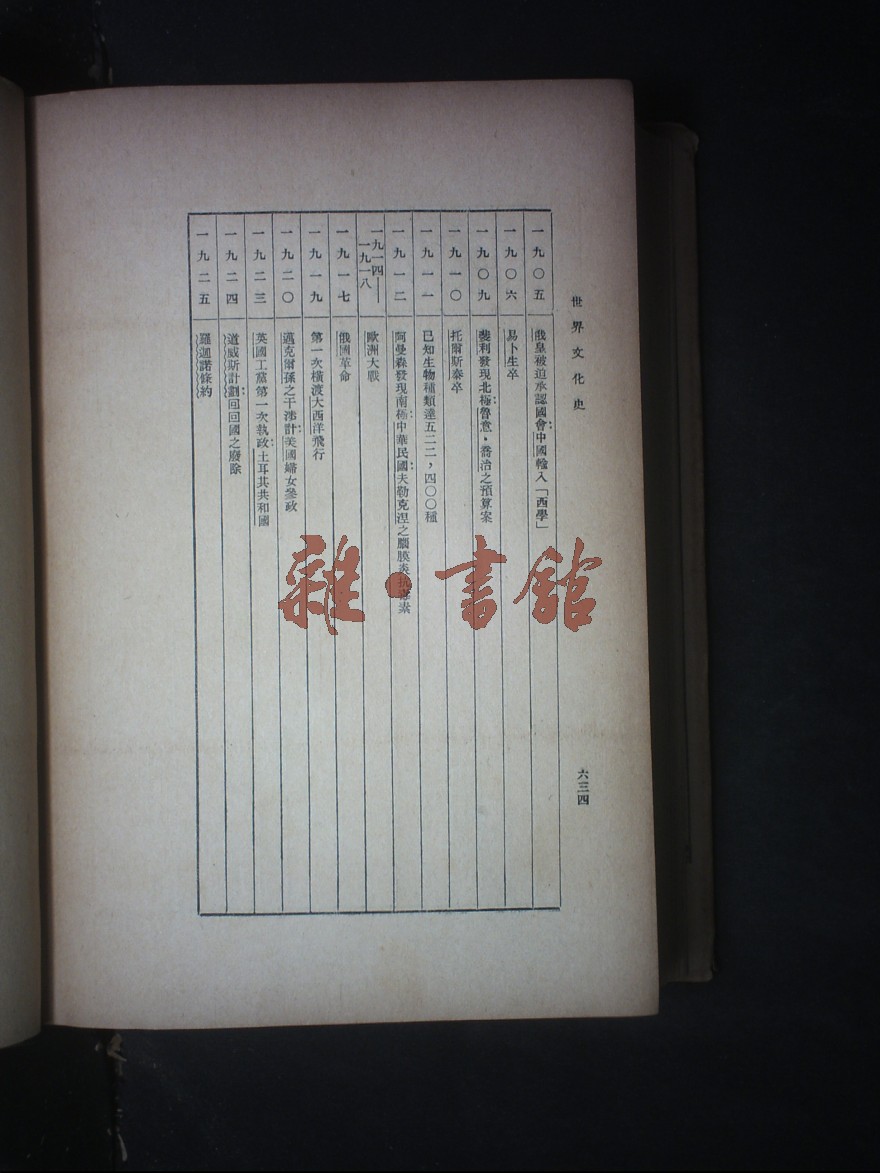 世界文化史
六三四
一九〇五 俄皇被迫承認國會:中國輸入「西學」
一九〇六 易卜生卒
一九〇九 斐利發現北極:魯意·喬治之預算案
一九一〇 托爾斯泰卒
一九一一 已知生物種類達五二二，四〇〇種
一九一二 阿曼森發現南極:中華民國:夫勒克涅之腦膜炎抗毒素
一九一四—一九一八 歐洲大戰
一九一七 俄國革命
一九一九 第一次橫渡大西洋飛行
一九二〇 邁克爾孫之干涉計:美國婦女參政
一九二三 英國工黨第一次執政:土耳其共和國
一九二四 道威斯計劃:回回國之廢除
一九二五 羅迦諾條約
雜·書館